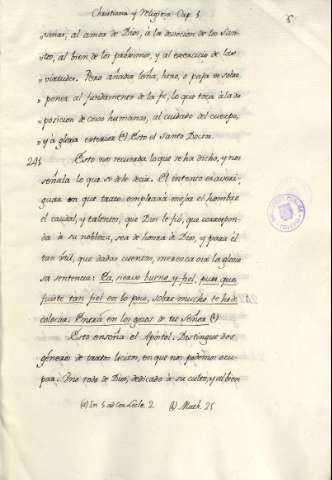 Christiana y Religiosa Cap. 5
5
sarias, al amor de Dios, à la devocion de los San-
tos, al bien de los proximos, y al exercicio de las
virtudes. Pero añadir leña, heno, o paja es sobre
poner al fundamento de la fe, lo que toca à la dis-
posicion de cosas humanas, al cuidado del cuerpo,
y à gloria exterior (a) Esto el Santo Doctor.
241 Esto nos recuerda lo que se ha dicho, y nos
señala lo que se debe decir. El intento es averi-
guar en que tratos empleará mejor el hombre
el caudal, y talentos, que Dios le fió, que correspon-
da à su nobleza, sea de honra de Dios, y para él
tan util, que dadas cuentas, merezca oir la glorio
sa sentencia: Ea, siervo bueno y fiel, pues que
fuiste tan fiel en lo poco, sobre mucho te he de
colocar. Entra en los gozos de tu Señor (b)
Esto enseña el Apóstol. Distingue dos
géneros de tratos licitos, en que nos podemos ocu
par. Uno todo de Dios, dedicado à su culto, y al bien
(b) Math. 25